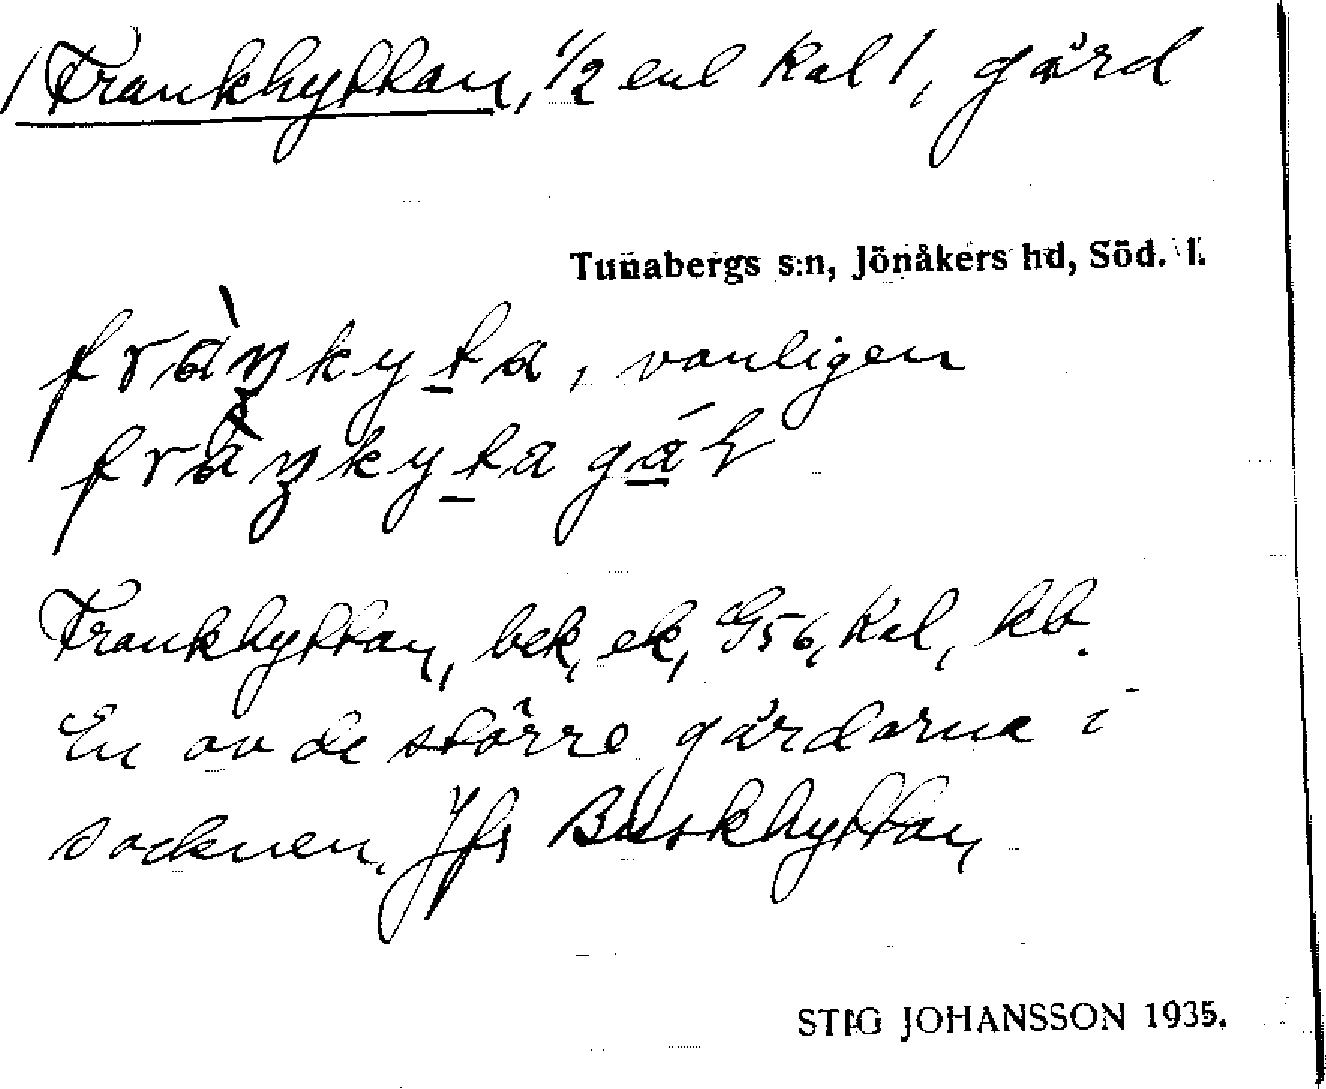 / Frankhyttan, 1/2 enl Kal 1, gård
Tunabergs s:n, Jönåkers hd, Söd. l.
fràŋkyta, vanligen
fràŋkytagáɽ
Frankhyttan, bek, ek, G56, Kal, kb.
En av de större gårdarna i
socknen. Jfr Buskhyttan
STIG JOHANSSON 1935.